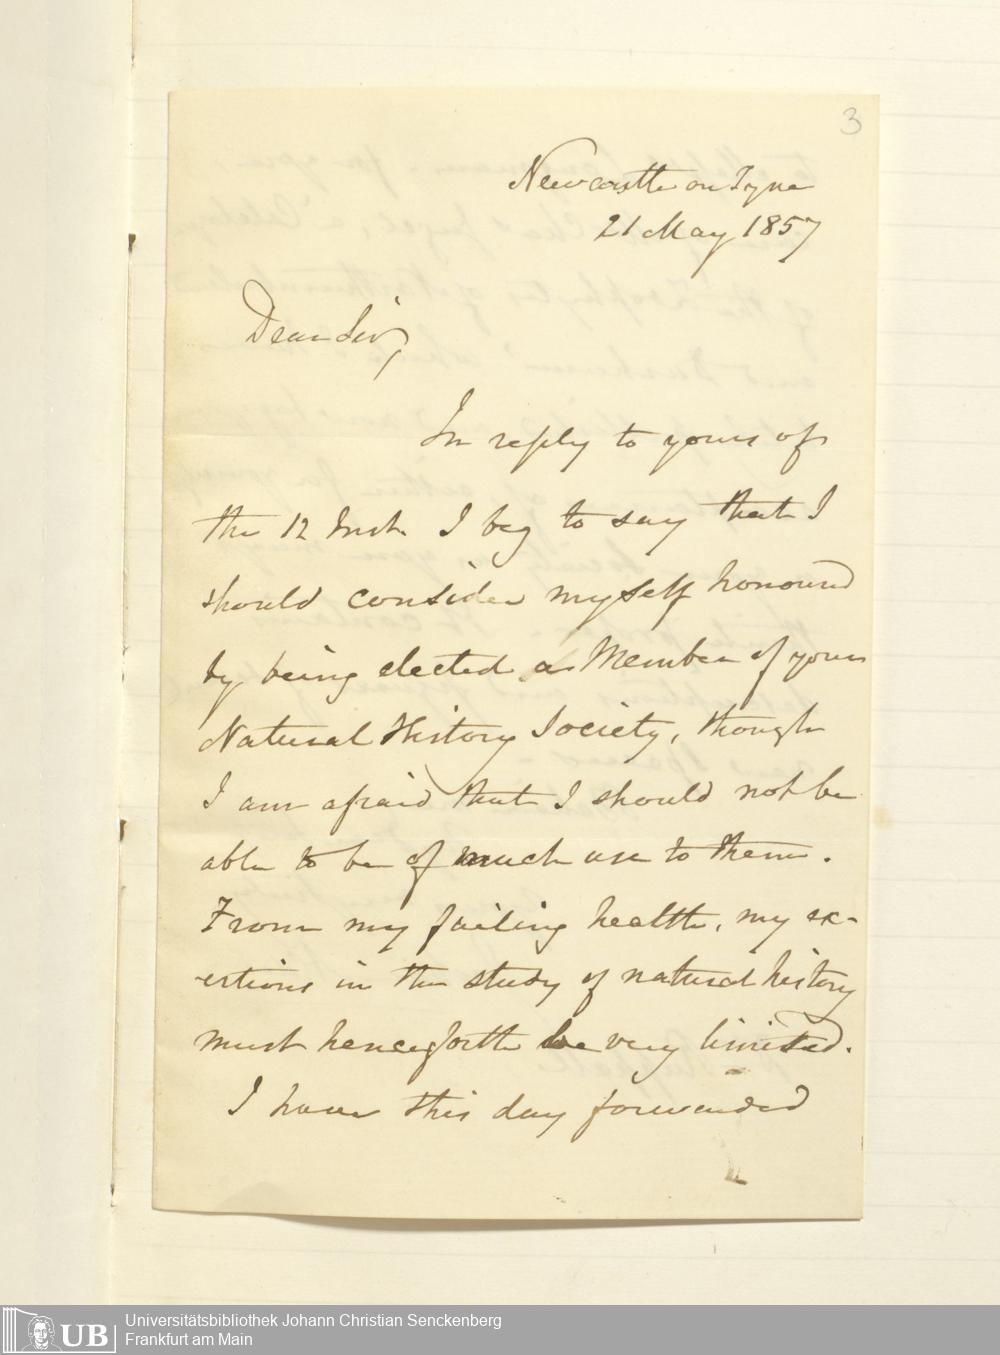 3
Newcastle on Tyne
21 May 1857
Dear Sir,
In reply to yours of
the 12 Inst. I beg to say that I
should consider myself honoured
by being elected a Member of your
Natural History Society, though
I am afraid that I should not be
able to be of much use to them.
From my failing health, my ex-
ertions in the study of natural history
must henceforth be very limited.
I have this day forwarded
UB
Universitätsbibliothek Johann Christian Senckenberg
Frankfurt am Main